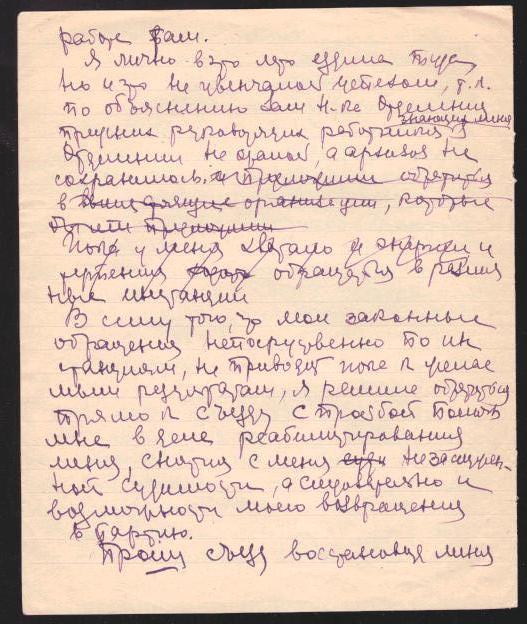 работе там.
Я лично в это лето ездила туда,
но и это не увенчалось успехом, т.к.
по объяснению зам. Н-ка Отделения
прежних руководящих работников знающих меня в
Отделении не осталось, а архивов не
сохранилось. и предложили обратиться
в вышестоящие организации, которые
Пока у меня хватало и энергии и
терпения обращаться в различ
ные инстанции
В силу того, что мои законные
обращения непосредственно по ин
станциям, не приводят пока к желае
мым результатам, я решила обратиться
прямо к съезду с просьбой помочь
мне в деле реабилитирования
меня, снятия с меня незаслужен-
ной судимости, а следовательно и
возможности моего возвращения
в партию.
Прошу съезд восстановив меня